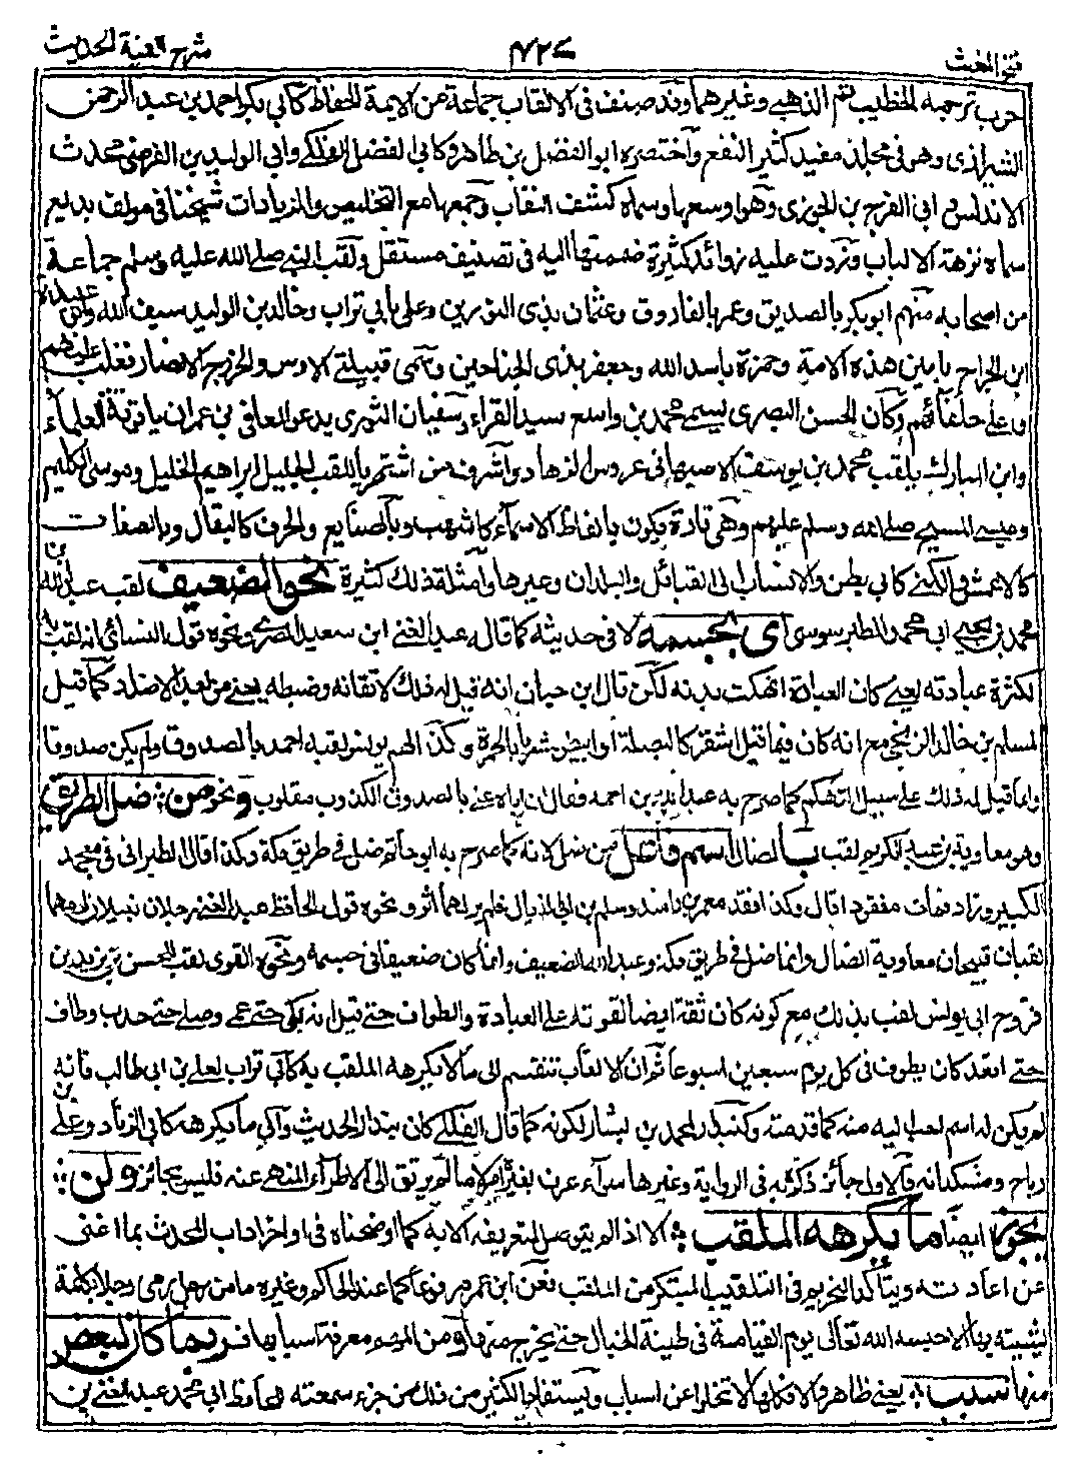 شرح الفية الحديث ٤٢٧ فتح المغيث
حرب ترجمه الخطيب ثم الذهبي وغيرهما وقد صنف في الالقاب جماعة من الايمة الحفاظ كابي بكر احمد بن عبد الرحمن
الشيرازي وهو في مجلد مفيد كثير النفع واختصره ابو الفضل بن طاهر وكابي الفضل الفلكي وابي الوليد بن الفرضي محدث
الاندلس وابي الفرج بن الجوزي وهو اوسعها وسماه كشف النقاب وجمعها مع التلخيص والزيادات شيخنا في مولف بديع
سماه نزهة الالباب وزدت عليه زوائد كثيرة ضممتها اليه في تصنيف مستقل ولقب النبي صلى الله عليه وسلم جماعة
من اصحابه منهم ابو بكر بالصديق وعمر بالفاروق وعثمان بذي النورين وعلي بابي تراب وخالد بن الوليد سيف الله وابي عبيدة
ابن الجراح بامين هذه الامة وحمزة باسد الله وجعفر بذي الجناحين وسمى قبيلتي الاوس والخزرج الانصار فغلب عليهم
وعلى حلفائهم وكان الحسن البصري يسمي محمد بن واسع سيد القراء وسفيان الثوري يدعو المعافى بن عمران ياقوتة العلماء
وابن المبارك يلقب محمد بن يوسف الاصبهاني عروس الزهاد واشرف من اشتهر باللقب الجليل ابراهيم الخليل وموسى الكليم
وعيسى المسيح صلى الله وسلم عليهم وهي تارة يكون بالفاظ الاسماء كاشهب وبالصنايع والحرف كالبقال وبالصفات
كالاعمش والكنى كابي بطن والانساب الى القبائل والبلدان وغيرها وامثلة ذلك كثيرة نحو الضعيف لقب عبد الله بن
محمد بن يحيى ابي محمد الطرسوسي اي بجسمه لا في حديثه كما قاله عبد الغني ابن سعيد المصري ونحوه قول النسائي انه لقب به
لكثرة عبادته يعني كان العبادة انهكت بدنه لكن قال ابن حبان انه قيل له ذلك لاتقانه وضبطه يعني من باب الاضداد كما قيل
لمسلم بن خالد الزنجي مع انه كان فيما قيل اشقر كالبصلة او ابيض مشربا بالحمرة وكذا اتهم يونس لقبه احمد بالصدوق ولم يكن صدوقا
وانما قيل له ذلك على سبيل التهكم كما صرح به عبد الله بن احمد فقال ان اباه عنى بالصدوق الكذوب مقلوب ونحو من : ضل الطريق
وهو معاوية بن عبد الكريم لقب بـ الضال اسم فاعل من ضل لانه كما صرح به ابو حاتم ضل في طريق مكة وكذا قال الطبراني في معجمه
الكبير وزاد فمات مفقودا قال وكذا فقد معمر بن راشد وسلم بن ابي الذيال فلم ير لهما اثر ونحوه قول الحافظ عبد الغني رجلان نبيلان لزمهما
لقبان قبيحان معاوية الضال وانما ضل في طريق مكة وعبد الله الضعيف وانما كان ضعيفا في جسمه ونحوه القوي لقب الحسن بن يزيد بن
فروخ ابي يونس لقب بذلك مع كونه كان ثقة ايضا لقوته على العبادة والطواف حتى قيل انه بكى حتى عمي وصلى حتى حدب وطاف
حتى اقعد كان يطوف في كل يوم سبعين اسبوعا ثم ان الالقاب تنقسم الى ما لا يكرهه الملقب به كابي تراب لعلي بن ابي طالب فانه
لم يكن له اسم احب اليه منه كما قدمته وكبندار لمحمد بن بشار لكونه كما قال الفلكي كان بندار الحديث والى ما يكرهه كابي الزناد وعلي بن
رباح ومشكدانه فالاول جائز ذكره به في الرواية وغيرها سواء عرف بغيره ام لا ما لم يرتق الى الاطراء المنهي عنه فليس بجائز ولن :
يجوز ايضا ما يكرهه الملقب : الا اذا لم يتوصل لتعريفه الا به كما اوضحناه في اواخر اداب المحدث بما اغنى
عن اعادته ويتاكد التحريم في التلقيب المبتكر من الملقب فعن ابن عمر مرفوعا كما عند الحاكم وغيره ما من رجل رمى رجلا بكلمة
يشينه بها الا حبسه الله تعالى يوم القيامة في طينة الخبال حتى يخرج منها ومن المهم معرفة اسبابها فـ ربما كان لبعض
منها سبب : يعني ظاهر والا فكلها لا تخلو عن اسباب ويستفاد الكثير من ذلك من جزء سمعته للحافظ ابي محمد عبد الغني بن